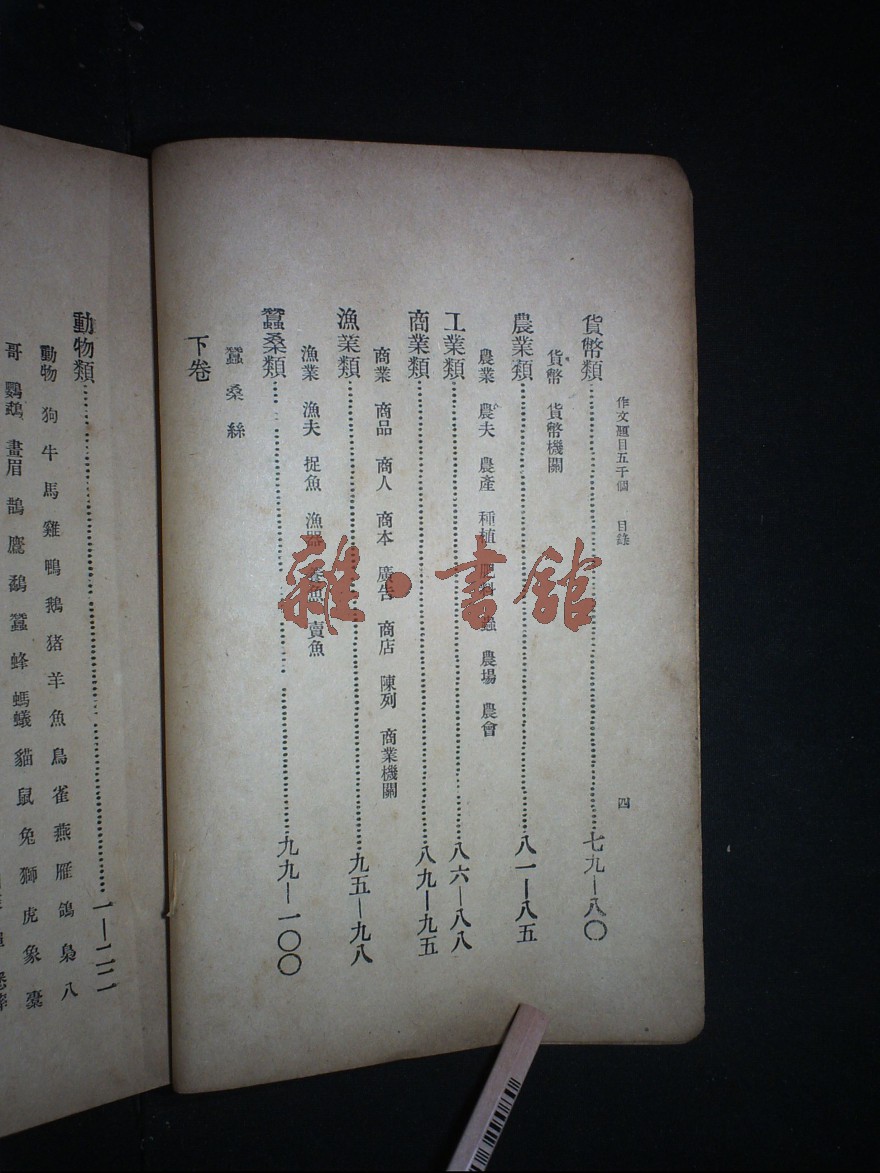 作文題目五千個 目錄 四
貨幣類 七九—八〇
貨幣 貨幣機關
農業類 八一—八五
農業 農夫 農產 種植 肥料 蟲 農場 農會
工業類 八六—八八
商業類 八九—九五
商業 商品 商人 商本 廣告 商店 陳列 商業機關
漁業類 九五—九八
漁業 漁夫 捉魚 漁器 養魚 賣魚
蠶桑類 九九—一〇〇
蠶 桑 絲
下卷
動物類 一—二二
動物 狗 牛 馬 雞 鴨 鵝 猪 羊 魚 鳥 雀 燕 雁 鴿 梟 八
哥 鸚鵡 畫眉 鵲 鷹 鷸 蠶 蜂 螞蟻 貓 鼠 兔 獅 虎 象
雜·書館